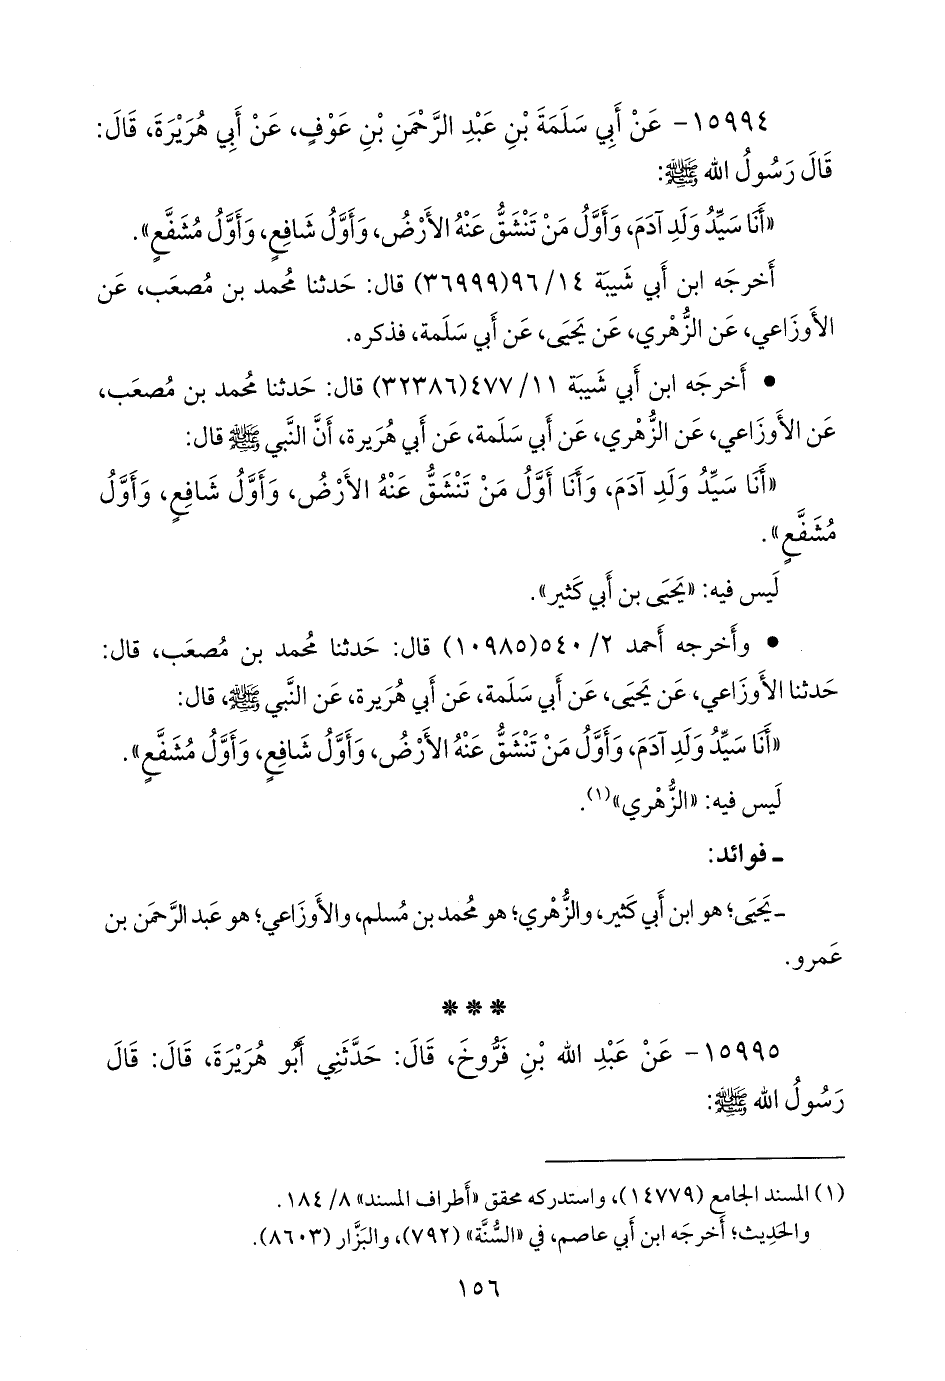 ١٥٩٩٤- عَنْ أَبِي سَلَمَةَ بْنِ عَبْدِ الرَّحْمَنِ بْنِ عَوْفٍ، عَنْ أَبِي هُرَيْرَةَ، قَالَ:
قَالَ رَسُولُ الله ﷺ:
«أَنَا سَيِّدُ وَلَدِ آدَمَ، وَأَوَّلُ مَنْ تَنْشَقُّ عَنْهُ الأَرْضُ، وَأَوَّلُ شَافِعٍ، وَأَوَّلُ مُشَفَّعٍ».
أَخرجَه ابن أَبي شَيبَة ١٤/ ٩٦(٣٦٩٩٩) قال: حَدثنا مُحمد بن مُصعَب، عَن
الأَوزَاعي، عَن الزُّهْري، عَن يَحيَى، عَن أَبي سَلَمة، فذكره.
• أَخرجَه ابن أَبي شَيبَة ١١/ ٤٧٧(٣٢٣٨٦) قال: حَدثنا مُحمد بن مُصعَب،
عَن الأَوزَاعي، عَن الزُّهْري، عَن أَبي سَلَمة، عَن أَبي هُرَيرة، أَنَّ النَّبي ﷺ قال:
«أَنَا سَيِّدُ وَلَدِ آدَمَ، وَأَنَا أَوَّلُ مَنْ تَنْشَقُّ عَنْهُ الأَرْضُ، وَأَوَّلُ شَافِعٍ، وَأَوَّلُ
مُشَفَّعٍ».
لَيس فيه: «يَحيَى بن أَبي كَثير».
• وأَخرجه أَحمد ٢/ ٥٤٠(١٠٩٨٥) قال: حَدثنا مُحمد بن مُصعَب، قال:
حَدثنا الأَوزَاعي، عَن يَحيَى، عَن أَبي سَلَمة، عَن أَبي هُرَيرة، عَن النَّبي ﷺ، قال:
«أَنَا سَيِّدُ وَلَدِ آدَمَ، وَأَوَّلُ مَنْ تَنْشَقُّ عَنْهُ الأَرْضُ، وَأَوَّلُ شَافِعٍ، وَأَوَّلُ مُشَفَّعٍ».
لَيس فيه: «الزُّهْري»(١).
ـ فوائد:
ـ يَحيَى؛ هو ابن أَبي كَثير، والزُّهْري؛ هو مُحمد بن مُسلم، والأَوزَاعي؛ هو عَبد الرَّحمَن بن
عَمرو.
***
١٥٩٩٥- عَنْ عَبْدِ الله بْنِ فَرُّوخَ، قَالَ: حَدَّثَنِي أَبُو هُرَيْرَةَ، قَالَ: قَالَ
رَسُولُ الله ﷺ:
(١) المسند الجامع (١٤٧٧٩)، واستدركه محقق «أَطراف المسند» ٨/ ١٨٤.
والحَدِيث؛ أَخرجَه ابن أَبي عاصم، في «السُّنَّة» (٧٩٢)، والبَزَّار (٨٦٠٣).
١٥٦